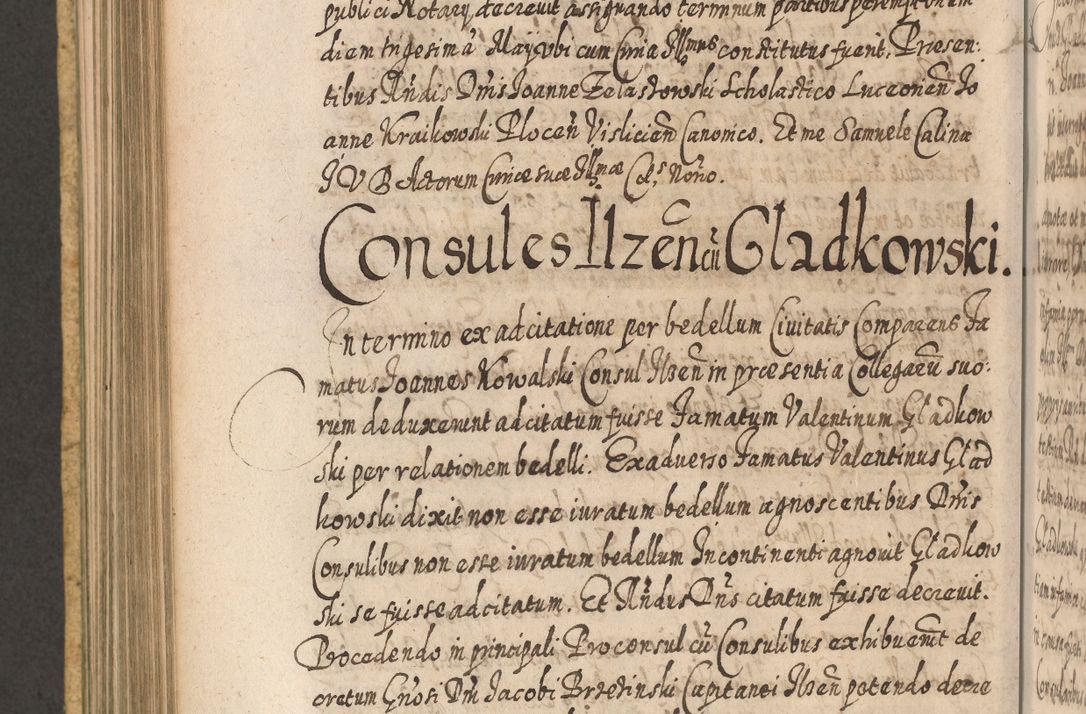 publici Notarij decrevit assignando terminum partibus peremptorium
diem trigesimā Maij ubi cum Curia Ill̃mus constitutus fuerit. Præsen:
tibus Rñdis Dñis Joanne Zelastowski Scholastico Luceorien̄ Jo
anne Kraikowski Plocen̄ Visliciēn Canonico. Et me Samuele Calina
J V D Actorum Curiæ suæ Illmæ Celˢ Nor̃io.
Consules Ilzen̄ cū Gladkowski.
In termino ex adcitatione per bedellum Civitatis Comparens Fa
matus Joannes Kowalski Consul Ilzen̄ in præsentia Collegarū suo:
rum deduxerunt adcitatum fuisse Famatum Valentinum Gladkow
ski per relationem bedelli. Ex adverso Famatus Valentinus Glad
kowski dixit non esse iuratum bedellum agnoscentibus Dñis
Consulibus non esse iuratum bedellum Incontinenti agnovit Gladkow
ski se fuisse adcitatum. Et Rñdus Dñs citatum fuisse decrevit.
Procedendo in principali Proconsul cū Consulibus exhibuerūt de
cretum Gñosi Dñi Jacobi Brzezinski Capitanei Ilzen̄ petendo decre